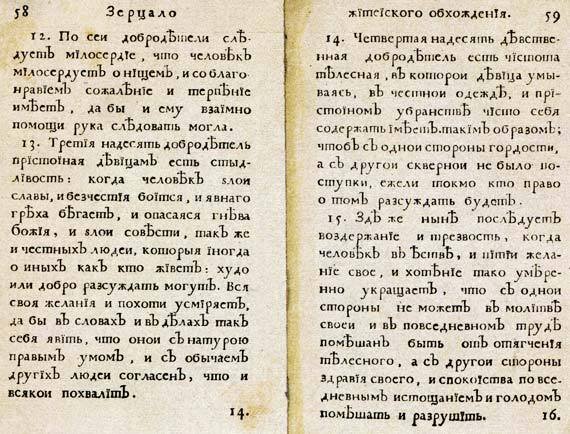 58 Зерцало
12. По сеи добродѣтели слѣ-
дуетъ мiлосердiе, что человѣкъ
мiлосердуетъ о нiщемъ, и со благо-
нравiемъ сожалѣнiе и терпѣнiе
имѣетъ, да бы и ему взаiмно
помощи рука слѣдовать могла.
13. Третiя надесять добродѣтель
прiстоiная дѣвiцамъ есть стыд-
лiвость: когда человѣкъ ѕлои
славы, и безчестiя боiтся, и явнаго
грѣха бѣгаетъ, и опасаяся гнѣва
божiя, и ѕлои совѣсти, такъ же
и честныхъ людеи, которыя iногда
о иныхъ какъ кто жiветъ: худо
или добро разсуждать могутъ. Вся
своя желанiя и похоти усмiряетъ,
да бы въ словахъ и въ дѣлахъ такъ
себя явiть, что онои съ натурою
правымъ умомъ, и съ обычаемъ
другiхъ людеи согласенъ, что и
всякои похвалiтъ.
14.
жiтеiского обхожденiя. 59
14. Четвертая надесять дѣвстве-
нная добродѣтель есть чiстота
тѣлесная, въ которои дѣвiца умы-
ваясь, въ честнои одеждѣ, и прi-
стоiномъ убранствѣ чiсто себя
содержать iмѣетъ. такiмъ образомъ;
чтобъ съ однои стороны гордости,
а съ другои сквернои не было по-
ступки, ежели токмо кто право
о томъ разсуждать будетъ.
15. Здѣ же нынѣ послѣдуетъ
воздержанiе и трезвость, когда
человѣкъ въ ѣствѣ, и пiтiи жела-
нiе свое, и хотѣнiе тако умѣре-
нно укращаетъ, что съ однои
стороны не можетъ въ молiтвѣ
своеи и въ повседневномъ трудѣ
помѣшанъ быть отъ отягченiя
тѣлесного, а съ другои стороны
здравiя своего, и спокоiства по все-
дневнымъ iстощанiемъ и голодомъ
помѣшать и разрушiть.
16.